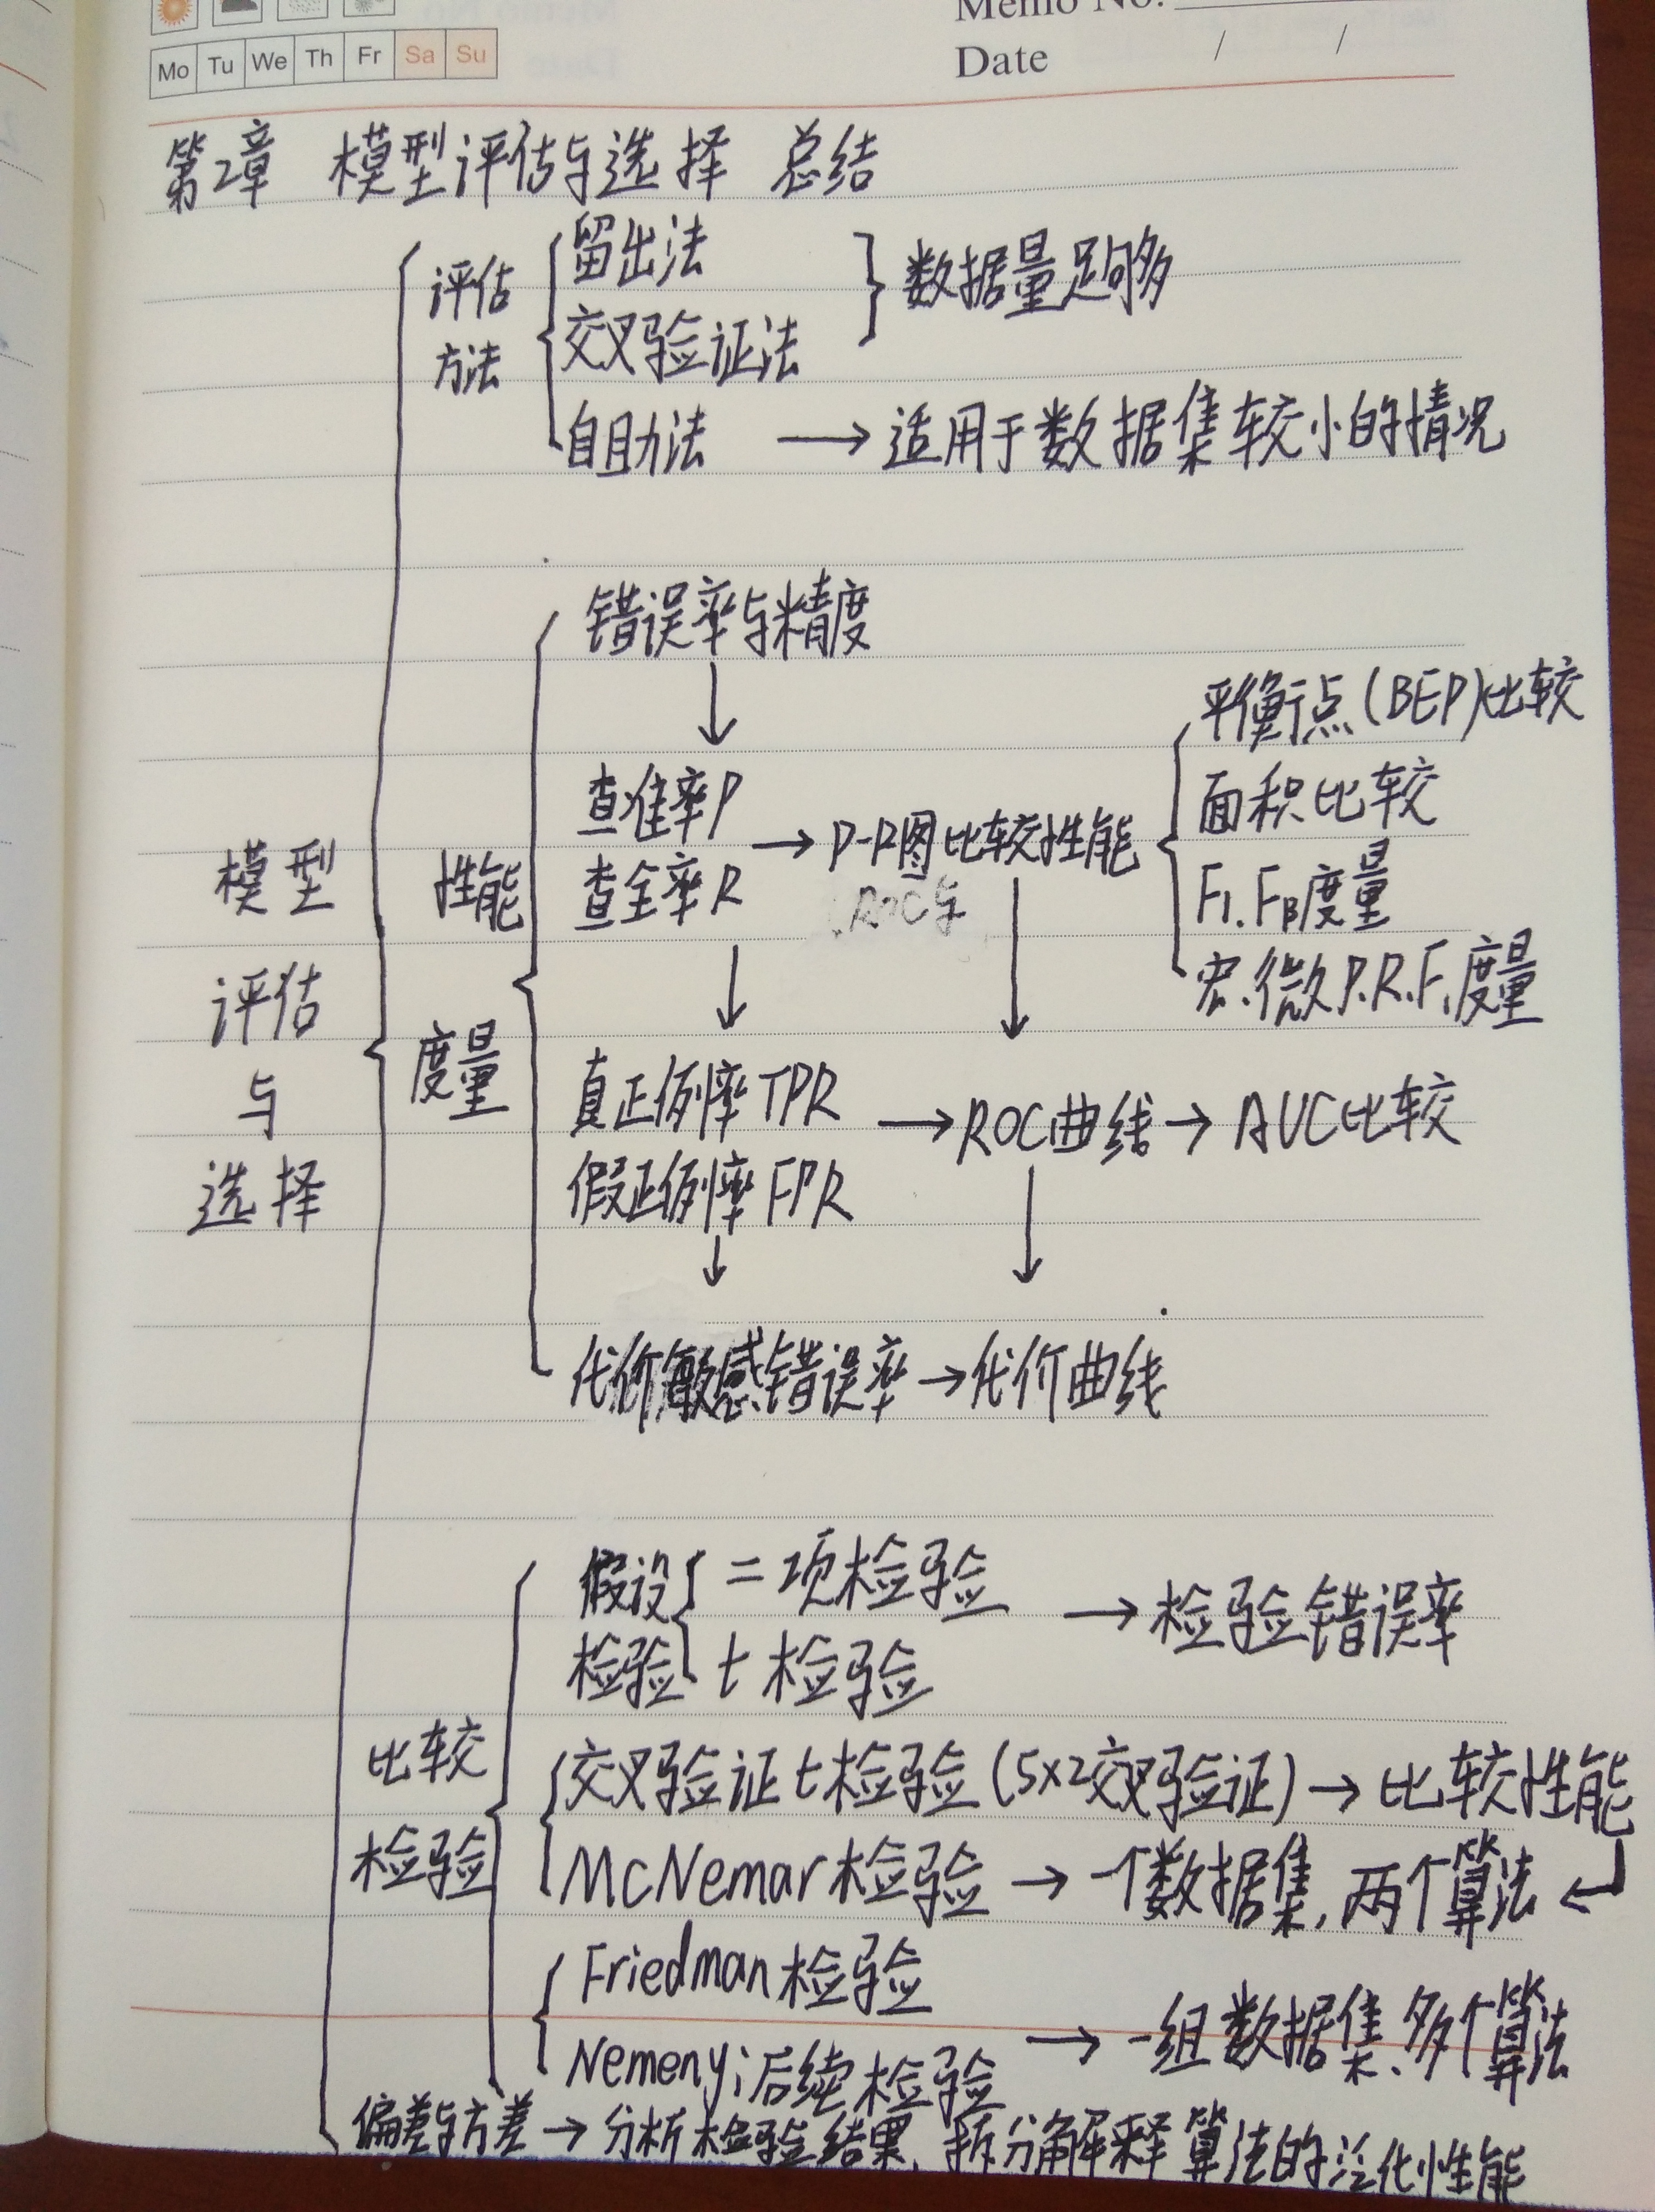 Memo No.
Mo Tu We Th Fr Sa Su
Date / /
第2章 模型评估与选择 总结
模型评估与选择
评估方法
留出法
交叉验证法
数据量足够多
自助法 → 适用于数据集较小的情况
性能度量
错误率与精度
↓
查准率P
查全率R
→ P-R图比较性能
平衡点(BEP)比较
面积比较
F1.Fβ度量
宏.微P.R.F1度量
ROC
↓ ↓
真正例率TPR
假正例率FPR
→ ROC曲线 → AUC比较
↓ ↓
代价敏感错误率 → 代价曲线
比较检验
假设检验
二项检验
t检验
→ 检验错误率
交叉验证t检验(5x2交叉验证) → 比较性能
McNemar检验 → 一个数据集,两个算法
Friedman检验
Nemenyi后续检验
→ 一组数据集、多个算法
偏差与方差 → 分析检验结果,拆分解释算法的泛化性能